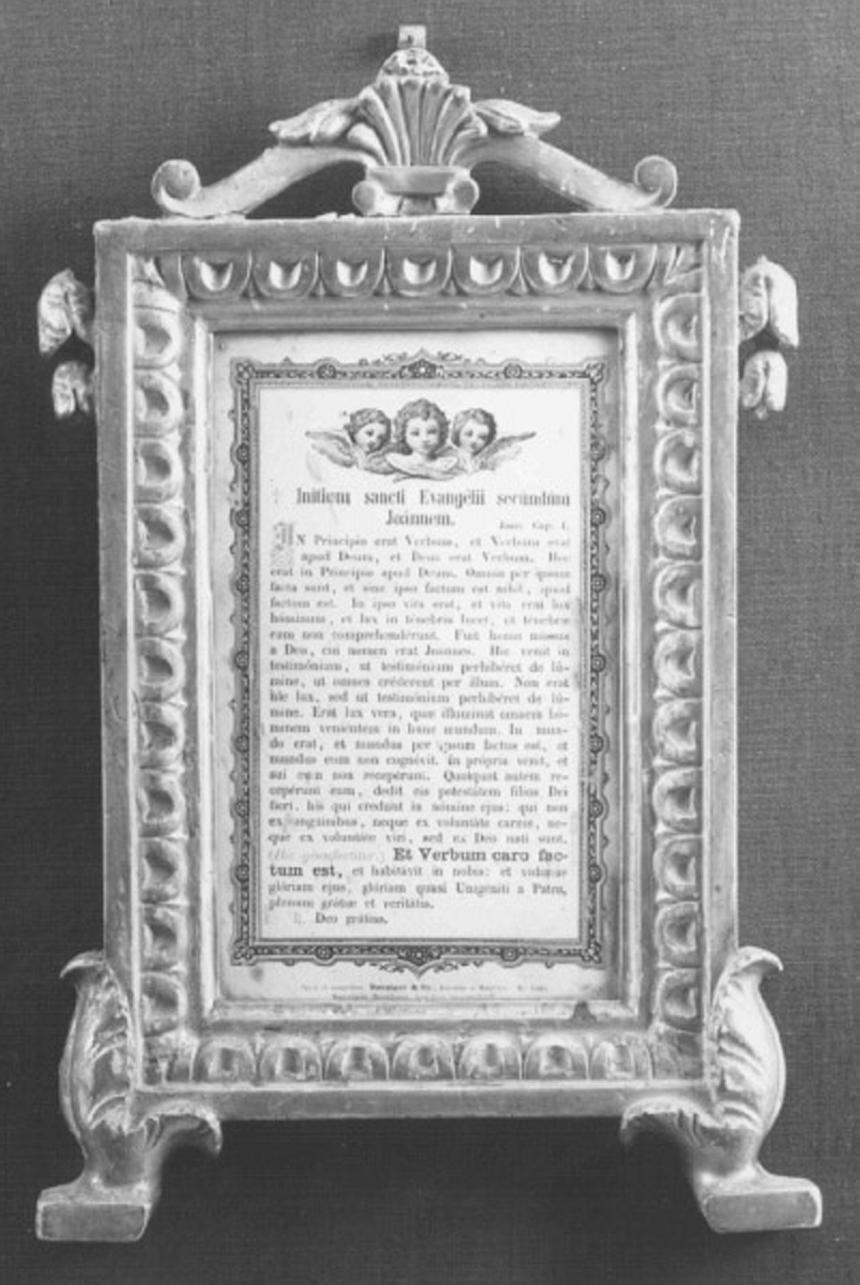 Initium sancti Evangélii secúndum
Joánnem. Joan. Cap. I.
IN Principio erat Verbum, et Verbum erat
apud Deum, et Deus erat Verbum. Hoc
erat in Principio apud Deum. Omnia per ipsum
facta sunt, et sine ipso factum est nihil, quod
factum est. In ipso vita erat, et vita erat lux
hóminum, et lux in ténebris lucet, et ténebræ
eam non comprehendérunt. Fuit homo missus
a Deo, cui nomen erat Joannes. Hic venit in
testimónium, ut testimónium perhibéret de lú-
mine, ut omnes créderent per illum. Non erat
ille lux, sed ut testimónium perhibéret de lú-
mine. Erat lux vera, quæ illúminat omnem hó-
minem venientem in hunc mundum. In mun-
do erat, et mundus per ipsum factus est, et
mundus eum non cognóvit. In própria venit, et
sui eum non recepérunt. Quotquot autem re-
cepérunt eum, dedit eis potestátem fílios Dei
fíeri, his qui credunt in nómine ejus: qui non
ex sanguínibus, neque ex voluntáte carnis, ne-
que ex voluntáte viri, sed ex Deo nati sunt.
(Hic genuflectitur.) Et Verbum caro fac-
tum est, et habitávit in nobis: et vídimus
glóriam ejus, glóriam quasi Unigéniti a Patre,
plenum grátiæ et veritátis.
Deo grátias.
Benziger